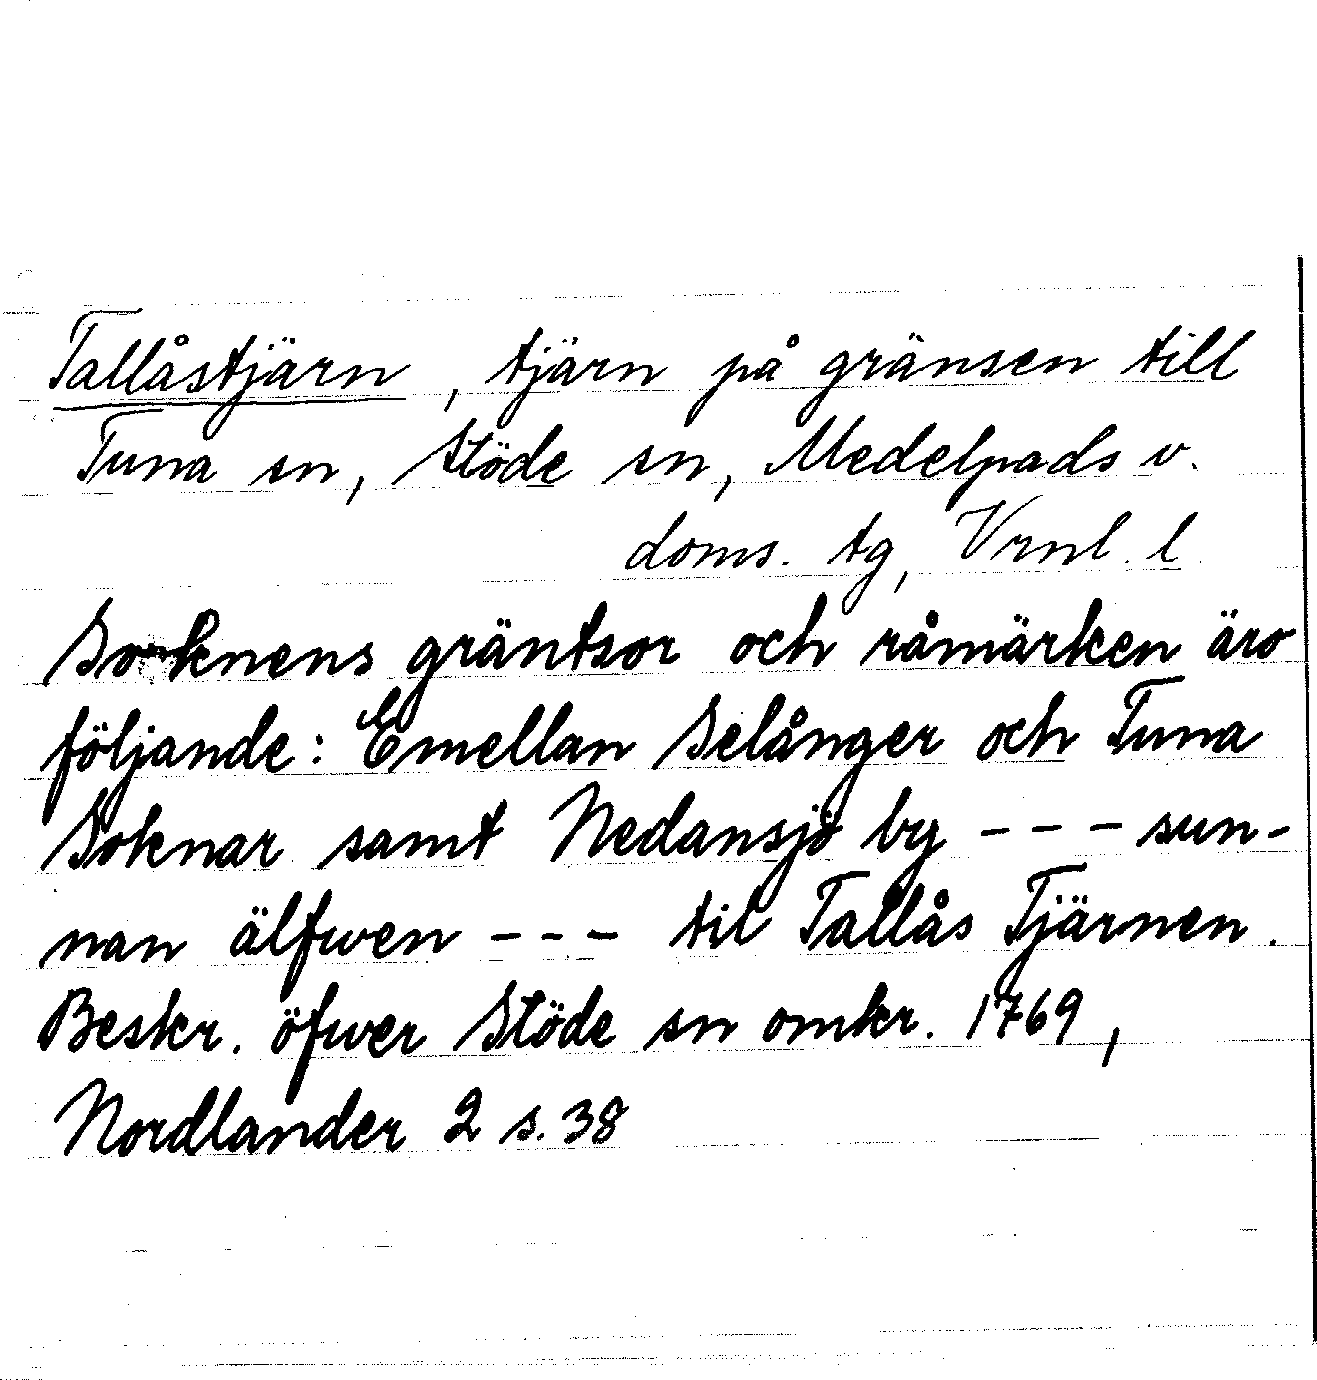 Tallåstjärn, tjärn på gränsen till
Tuna sn, Stöde sn, Medelpads v.
doms. tg, Vrnl. l
Soknens gräntsor och råmärken äro
följande: Emellan Selånger och Tuna
Soknar samt Nedansjö by - - - sun-
nan älfwen - - - til Tallås Tjärnen.
Beskr. öfwer Stöde sn omkr. 1769,
Nordlander 2 s. 38